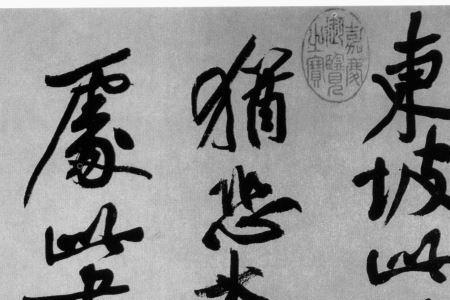 東坡此
猶恐太
處此書
嘉慶御覽之寶